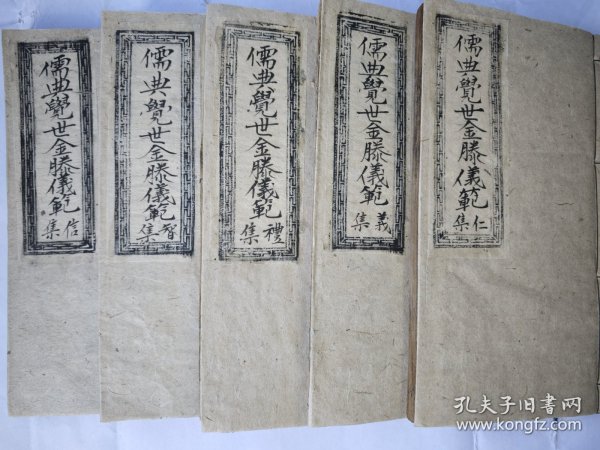 儒典覺世金滕儀範
仁集
儒典覺世金滕儀範
義集
儒典覺世金滕儀範
禮集
儒典覺世金滕儀範
智集
儒典覺世金滕儀範
信集
孔夫子旧书网
www.kongfz.com